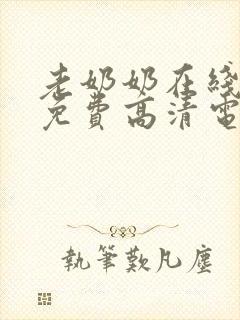 老奶奶在綫
免費高清電
執筆歎凡塵